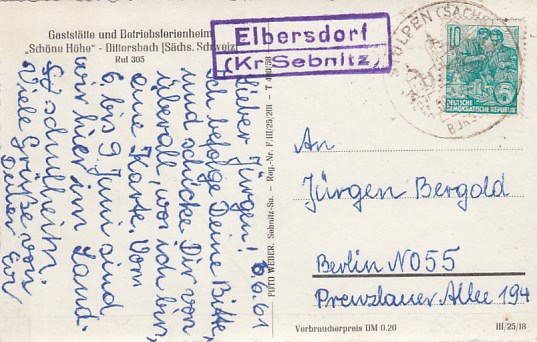 Gaststätte und Betriebsferienheim
„Schöne Höhe" - Dittersbach (Sächs. Schweiz)
Ruf 305
Elbersdorf
(Kr Sebnitz)
STOLPEN (SACHS)
BURG
10
DEUTSCHE
DEMOKRATISCHE REPUBLIK
6.6.61
Lieber Jürgen!
Ich befolge Deine Bitte,
und schicke Dir von
überall, wo ich bin,
eine Karte. Vom
6. bis 9 Juni sind
wir hier im Land-
schulheim.
Viele Grüße von
Deiner
FOTO WEBER, Sebnitz-Sa. - Reg.-Nr. F/III/25/201 - T 490/58
An
Jürgen Bergold
Berlin NO55
Prenzlauer Allee 194
Verbraucherpreis DM 0.20
III/25/18